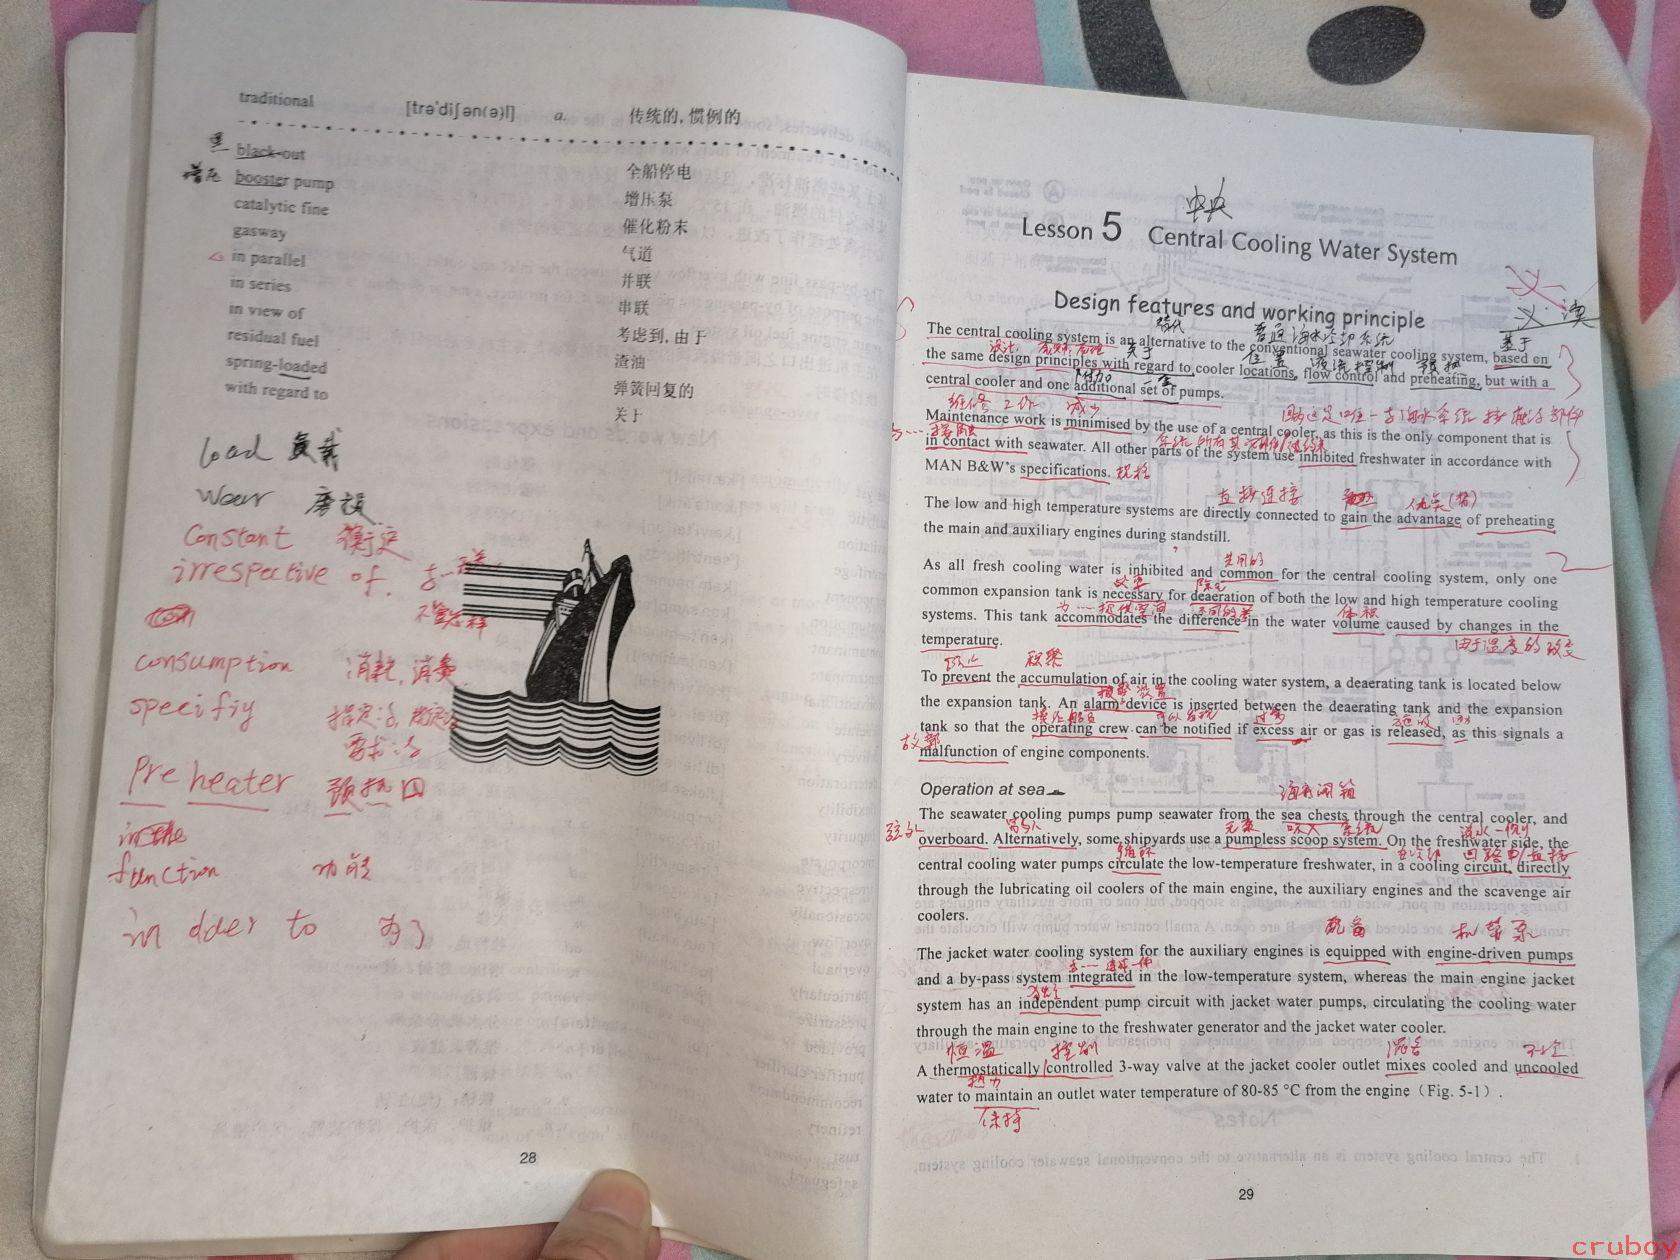 traditional [trə'diʃən(ə)l] a. 传统的,惯例的
black-out 全船停电
增压 booster pump 增压泵
catalytic fine 催化粉末
gasway 气道
in parallel 并联
in series 串联
in view of 考虑到,由于
residual fuel 渣油
spring-loaded 弹簧回复的
with regard to 关于
Load 负载
Wear 磨损
Constant
irrespective of
不管怎样
consumption 消耗,消费
specifiy
Pre heater
in the
function 功能
in dder to 为了
28
中央
Lesson 5 Central Cooling Water System
Design features and working principle
替代 普通海水冷却系统 基于
The central cooling system is an alternative to the conventional seawater cooling system, based on
设计 关于 位置 预热
the same design principles with regard to cooler locations, flow control and preheating, but with a
附加 一套
central cooler and one additional set of pumps.
维修工作 减少
Maintenance work is minimised by the use of a central cooler, as this is the only component that is
in contact with seawater. All other parts of the system use inhibited freshwater in accordance with
MAN B&W's specifications. 规格
直接连接
The low and high temperature systems are directly connected to gain the advantage of preheating
the main and auxiliary engines during standstill.
共用的
As all fresh cooling water is inhibited and common for the central cooling system, only one
common expansion tank is necessary for deaeration of both the low and high temperature cooling
体积
systems. This tank accommodates the difference in the water volume caused by changes in the
temperature. 由于温度的改变
防止 积聚
To prevent the accumulation of air in the cooling water system, a deaerating tank is located below
报警装置
the expansion tank. An alarm device is inserted between the deaerating tank and the expansion
tank so that the operating crew can be notified if excess air or gas is released, as this signals a
故障
malfunction of engine components.
Operation at sea 海水阀箱
The seawater cooling pumps pump seawater from the sea chests through the central cooler, and
舷外 无泵 吸入系统
overboard. Alternatively, some shipyards use a pumpless scoop system. On the freshwater side, the
循环
central cooling water pumps circulate the low-temperature freshwater, in a cooling circuit, directly
through the lubricating oil coolers of the main engine, the auxiliary engines and the scavenge air
coolers.
配备 机带泵
The jacket water cooling system for the auxiliary engines is equipped with engine-driven pumps
and a by-pass system integrated in the low-temperature system, whereas the main engine jacket
独立
system has an independent pump circuit with jacket water pumps, circulating the cooling water
through the main engine to the freshwater generator and the jacket water cooler.
恒温 控制 混合
A thermostatically controlled 3-way valve at the jacket cooler outlet mixes cooled and uncooled
热力
water to maintain an outlet water temperature of 80-85 °C from the engine (Fig. 5-1) .
保持
29
cruboy